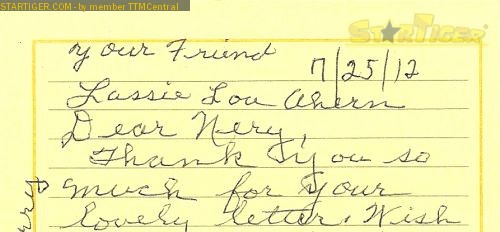 STARTIGER.COM - by member TTMCentral
STARTIGER
your Friend
7/25/12
Lassie Lou Ahern
Dear Nery,
Thank you so
much for your
lovely letter. Wish